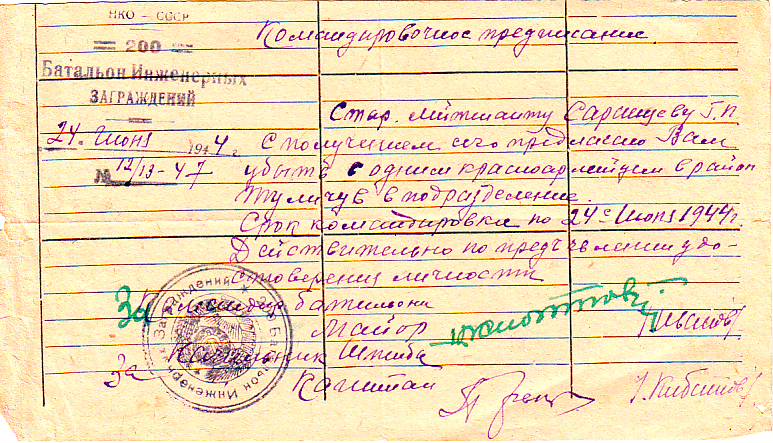 НКО – СССР
200
Батальон Инженерных
ЗАГРАЖДЕНИЙ
24. Июня 1944 г.
№ 12/13-47
Командировочное предписание.
Стар. Лейтенанту Саранцеву Г.П
С получением сего предлагаю Вам
убыть с одним красноармейцем в район
Туличув в подразделение.
Срок командировки по 24е Июня 1944г.
Действительно по предъявлении удо-
стоверения личности
За Командир батальона
Майор
За Начальник Штаба
Капитан